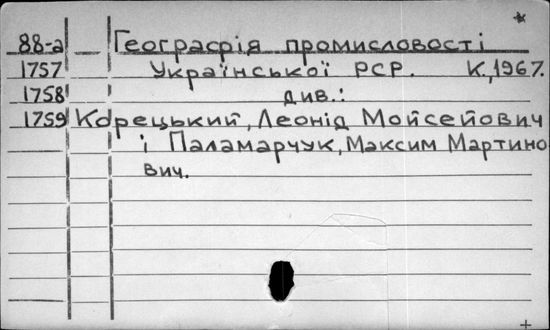 88-а Географія промисловості
1757 Української РСР. К.,1967.
1758 див.:
1759 Корецький, Леонід Мойсейович
і Паламарчук, Максим Мартино
вич.